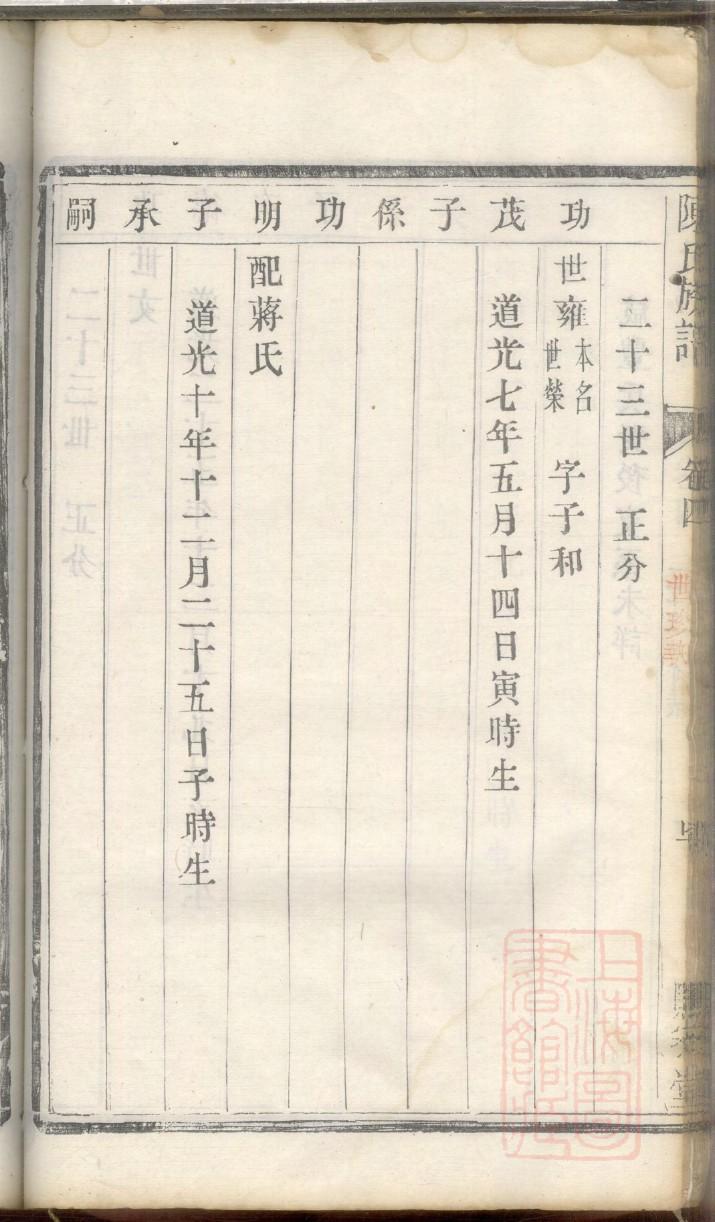 陳氏族譜
卷四
二十三世 正分
功 世雍 本名世榮 字子和
茂 道光七年五月十四日寅時生
子
係
功
明 配蔣氏
子 道光十年十二月二十五日子時生
承
嗣
上海圖書館藏